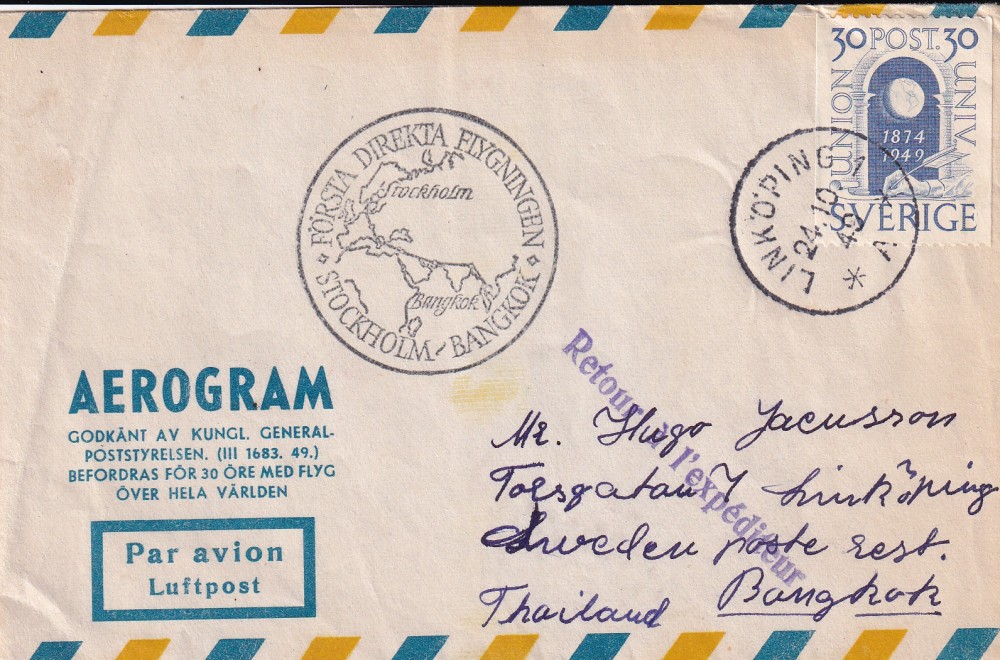 30 POST. 30
UNION
UNIV.
1874
1949
SVERIGE
LINKÖPING 1
24.10
49
* A *
FÖRSTA DIREKTA FLYGNINGEN
STOCKHOLM - BANGKOK
Stockholm
Bangkok
AEROGRAM
GODKÄNT AV KUNGL. GENERAL-
POSTSTYRELSEN. (III 1683. 49.)
BEFORDRAS FÖR 30 ÖRE MED FLYG
ÖVER HELA VÄRLDEN
Par avion
Luftpost
Retour à l'expéditeur
Mr. Hugo Jacusson
Torsgatan 7 Linköping
Sweden poste rest.
Thailand Bangkok